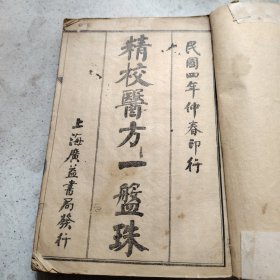 民國四年仲春印行
精校醫方一盤珠
上海廣益書局發行